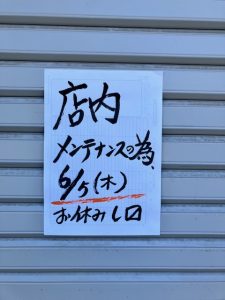 店内
メンテナンスの為、
6/5(木)
お休みし〼